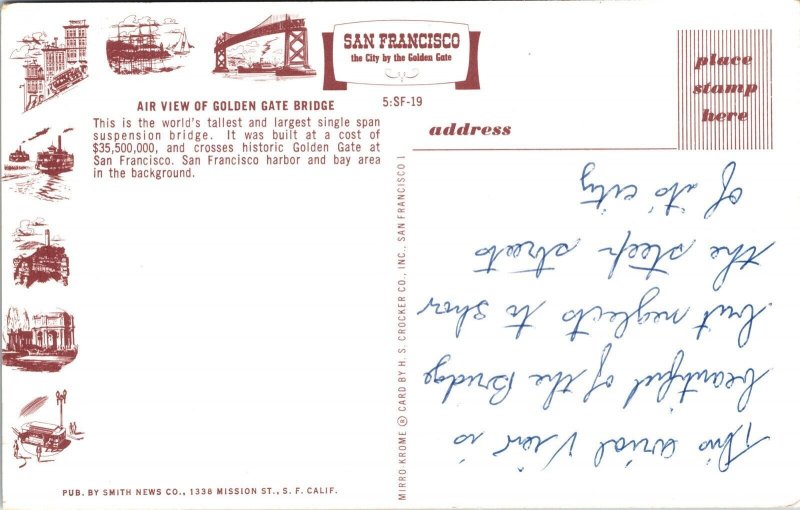 SAN FRANCISCO
the City by the Golden Gate
place
stamp
here
AIR VIEW OF GOLDEN GATE BRIDGE
5:SF-19
This is the world's tallest and largest single span
suspension bridge. It was built at a cost of
$35,500,000, and crosses historic Golden Gate at
San Francisco. San Francisco harbor and bay area
in the background.
address
MIRRO-KROME ® CARD BY H. S. CROCKER CO., INC., SAN FRANCISCO 1
This arial View is
beautiful of the Bridge
but neglects to show
the steep streets
of its' city
PUB. BY SMITH NEWS CO., 1338 MISSION ST., S. F. CALIF.